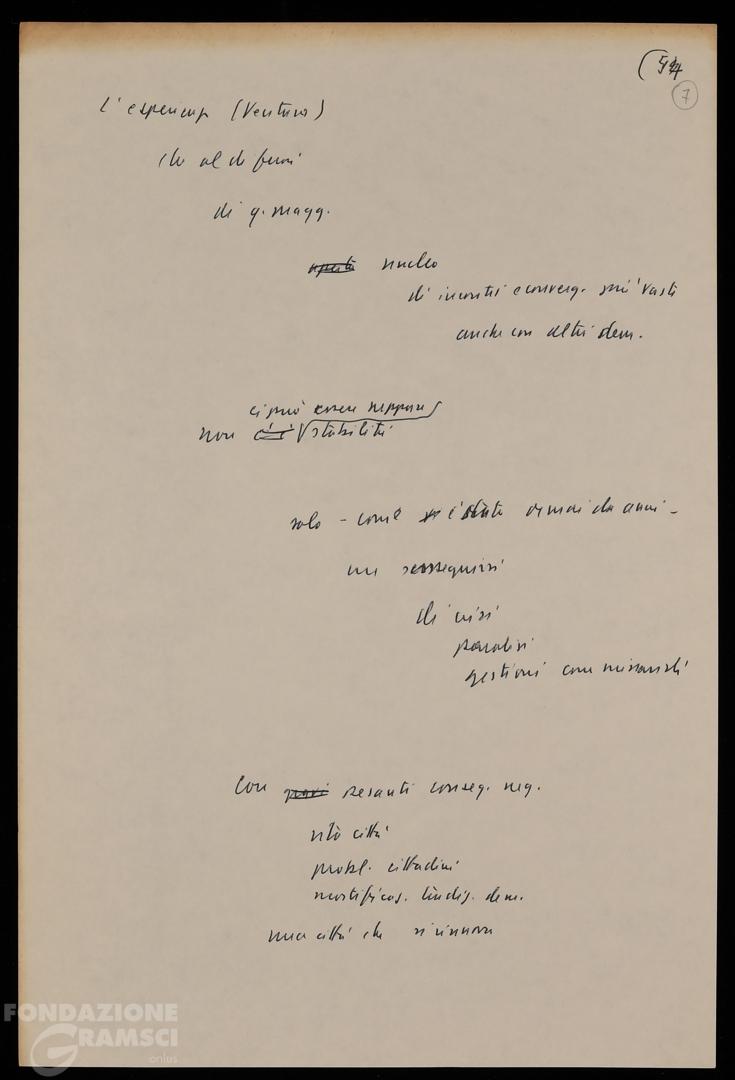 7
L'esperienza (Ventura)
che al di fuori
di q. magg.
nucleo
di incontri e converg. più vasti
anche con altri dem.
ci può essere neppure
non c'è stabilità
solo – come è stato ormai da anni –
un susseguirsi
di crisi
paralisi
gestioni commissariali
Con gravi pesanti conseg. neg.
vita città
probl. cittadini
mortificaz. tradiz. dem.
una città che si rinnova
FONDAZIONE
GRAMSCI
onlus